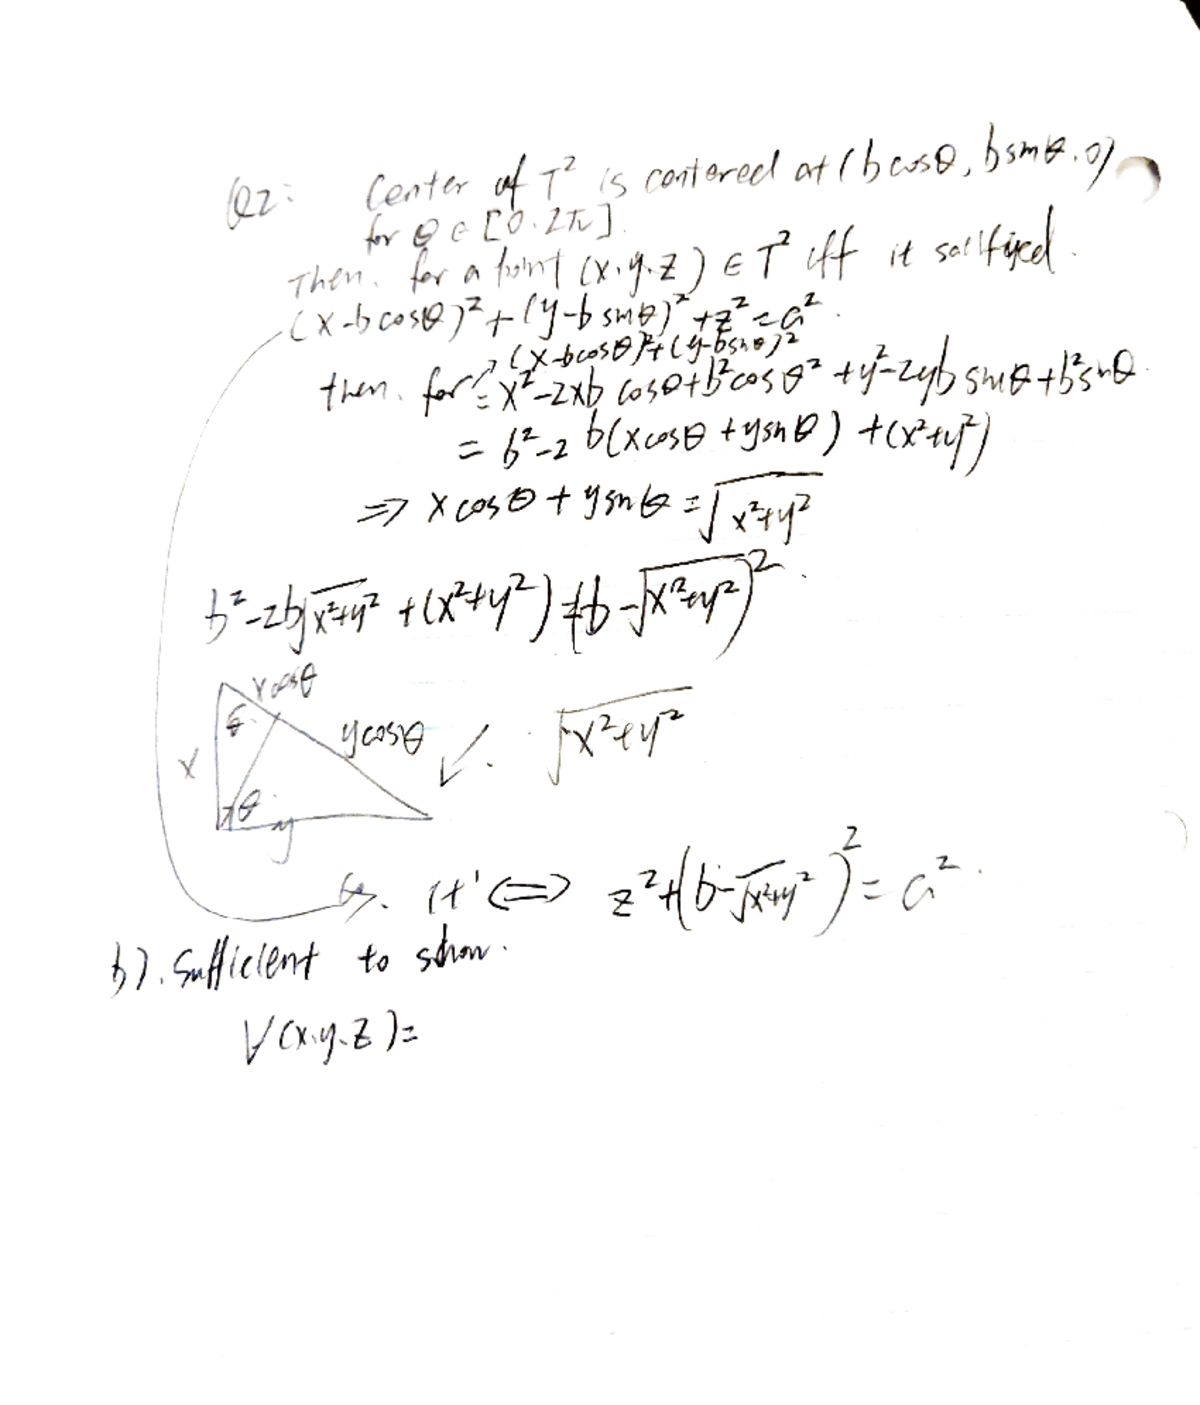 Q2: Center of T² is centered at (b cosθ, b sinθ, 0)
for θ ∈ [0. 2π].
Then. for a point (x.y.z) ∈ T² iff it satisfied.
(x-b cosθ)² + (y-b sinθ)² + z² = a².
(x-bcosθ)²+(y-bsinθ)²
then. for = x²-2xb cosθ+b²cosθ² +y²-2yb sinθ+b²sinθ
= b²-2 b(xcosθ +ysinθ) +(x²+y²)
⇒ x cosθ + y sinθ = √x²+y²
b²-2b√x²+y² +(x²+y²) = (b-√x²+y²)².
xcosθ
θ
ycosθ ✓. √x²+y²
x
θ
y
⇔ z²+(b-√x²+y²)² = a².
b). Sufficient to show.
V(x.y.z)=